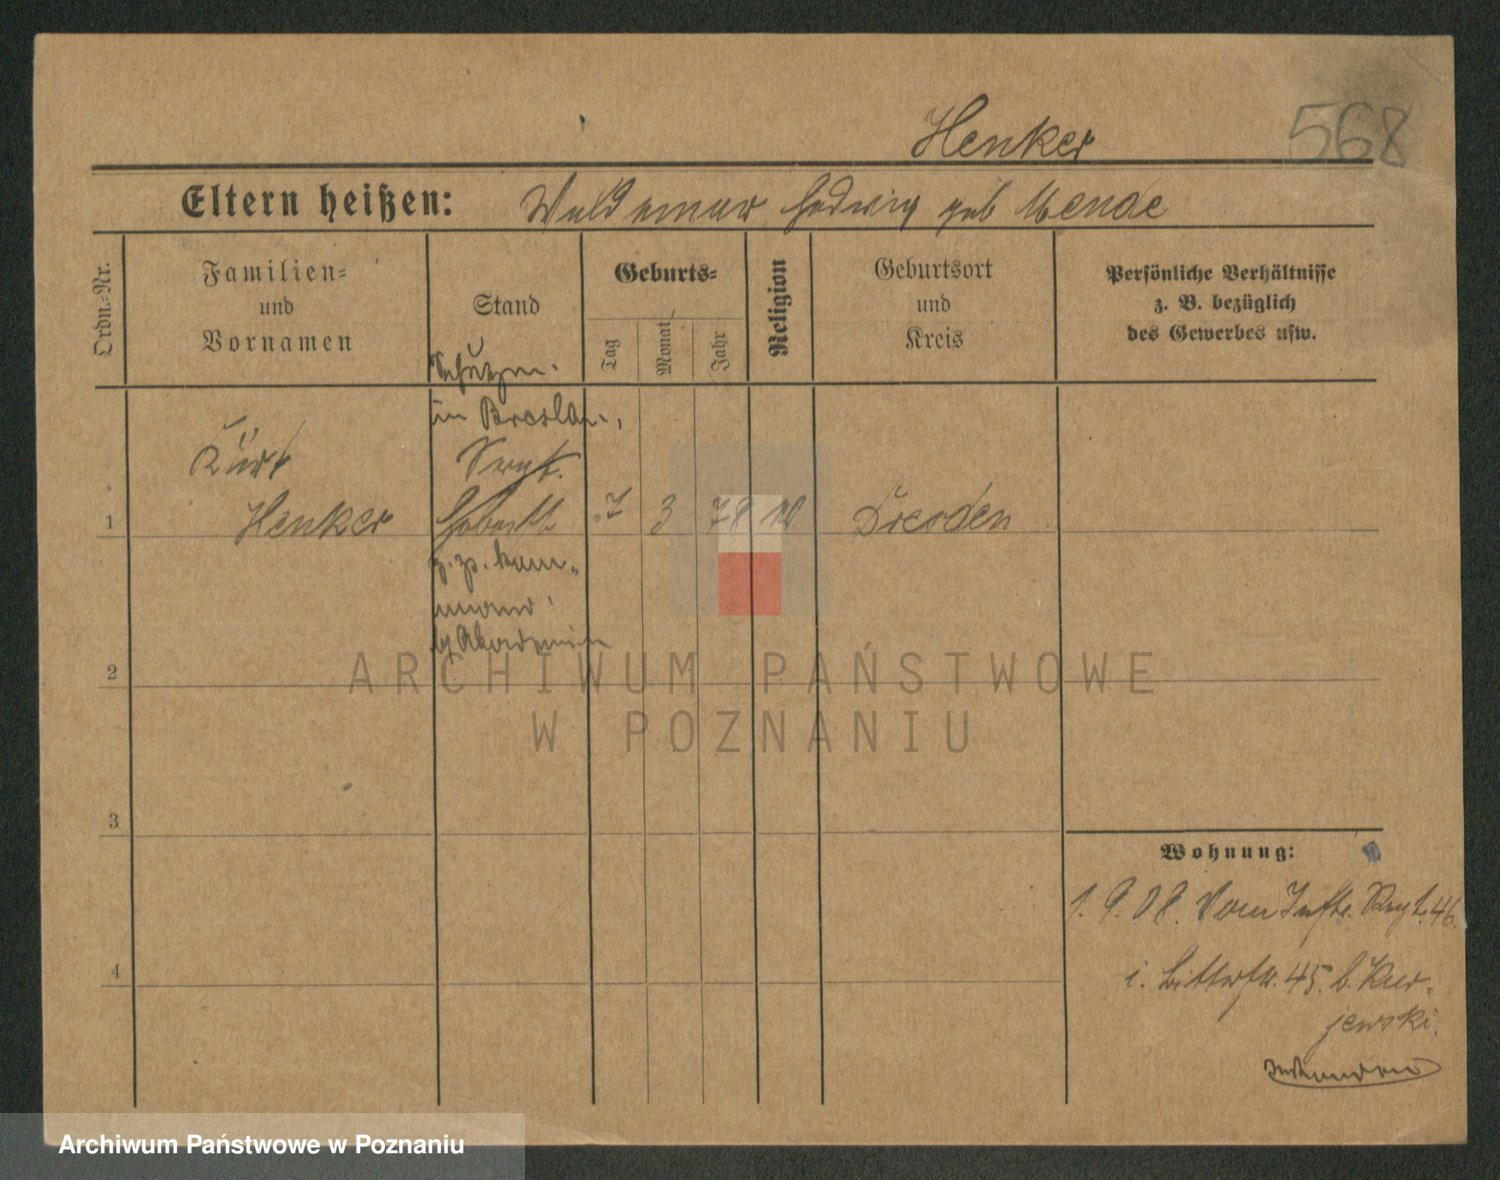 Henker 568
Eltern heißen: Waldemar Hedwig geb Mende
Ordn.-Nr.
Familien-
und
Vornamen
Stand
Geburts-
Tag
Monat
Jahr
Religion
Geburtsort
und
Kreis
Persönliche Verhältnisse
z. B. bezüglich
des Gewerbes usw.
in Breslau,
Kurt
Sergt.
1 Henker 7 3 78 Dresden
z. Zt. kom-
mand.
Akademie
2
3
4
Wohnung:
1. 9. 08. Vom Inftr. Regt. 46
i. Ritterstr. 45. b. Kur-
jewski.
ARCHIWUM PAŃSTWOWE
W POZNANIU
Archiwum Państwowe w Poznaniu